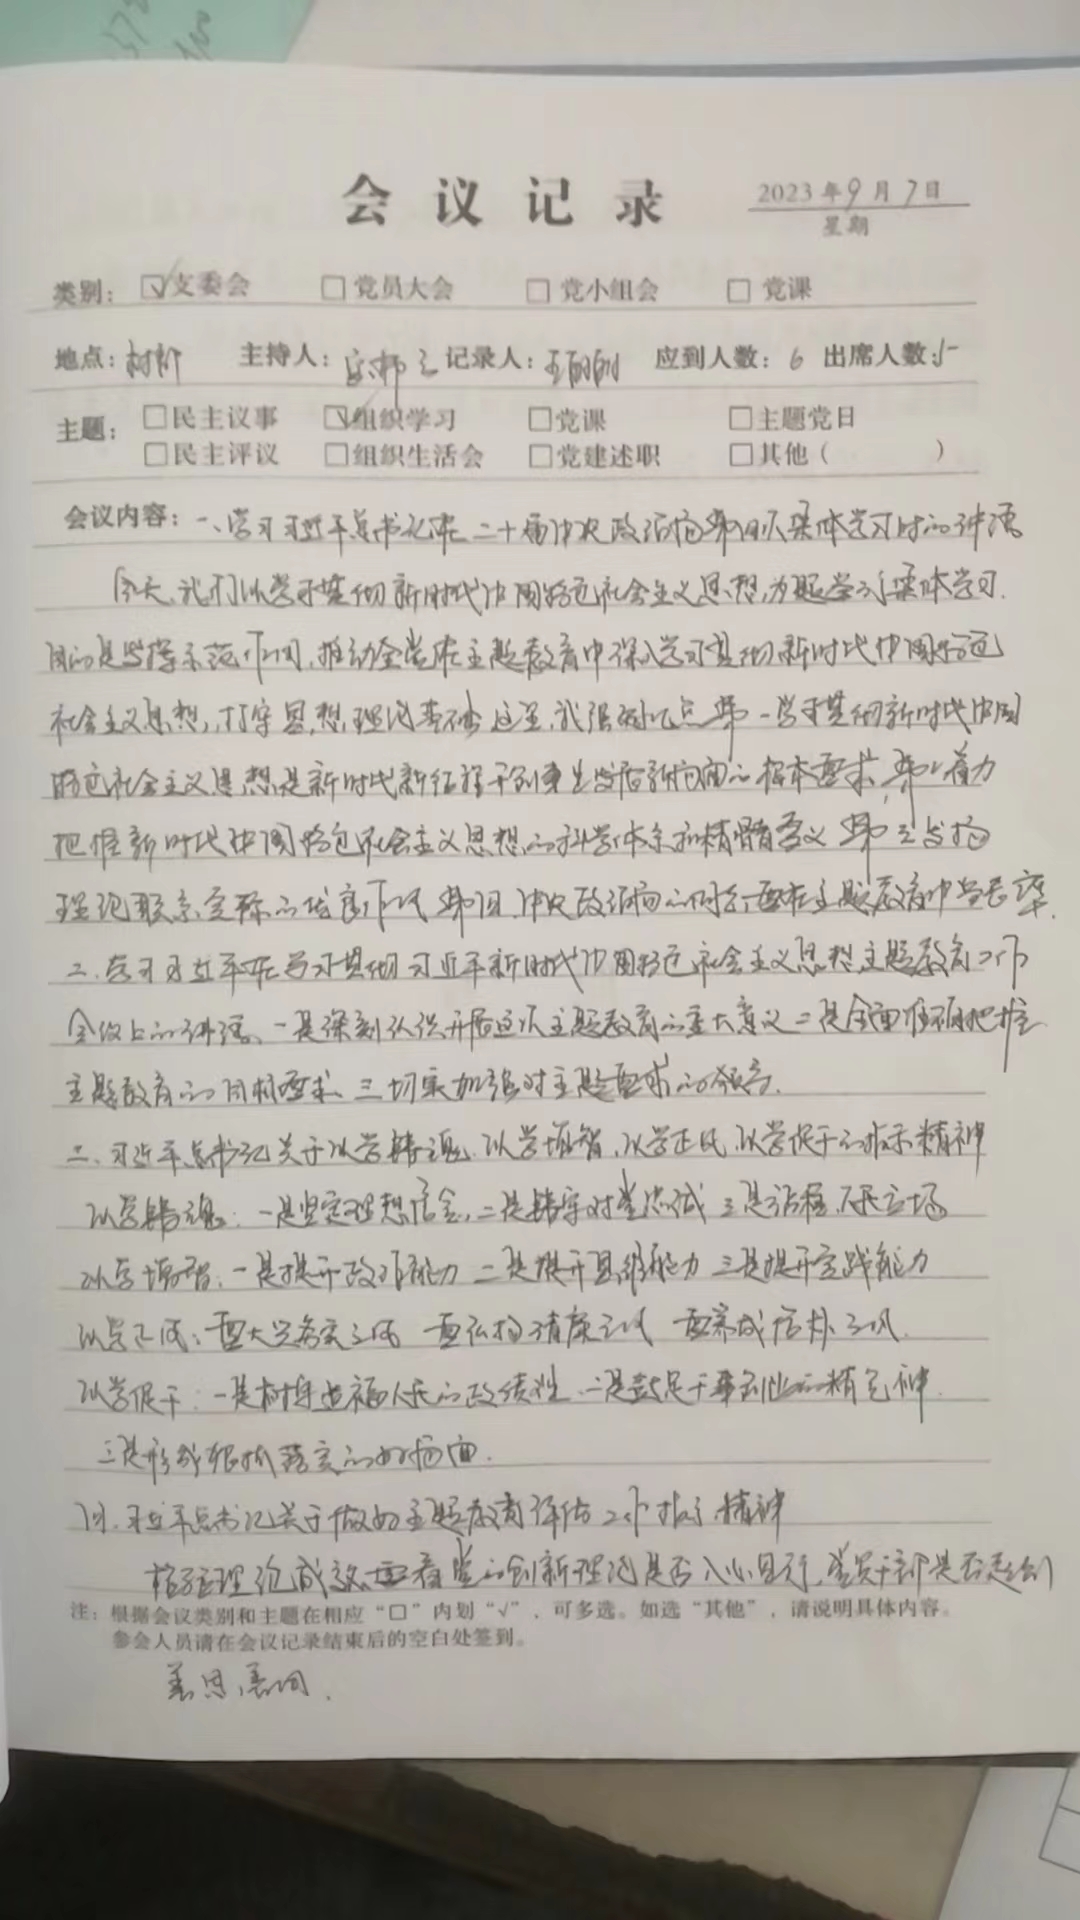 会议记录
2023年9月7日
星期
类别：☑支委会 □党员大会 □党小组会 □党课
地点：村部 主持人： 记录人： 应到人数：6 出席人数：5
主题：□民主议事 ☑组织学习 □党课 □主题党日
□民主评议 □组织生活会 □党建述职 □其他（ ）
会议内容：一、学习习近平总书记在二十届中央政治局第四次集体学习时的讲话
今天，我们以学习贯彻新时代中国特色社会主义思想，为题学习集体学习.
目的是发挥示范作用，推动全党在主题教育中深入学习贯彻新时代中国特色
社会主义思想，打牢思想理论基础 这里，我强调几点 第一 学习贯彻新时代中国
特色社会主义思想是新时代新征程开创事业发展新局面的根本要求，第二着力
把握新时代中国特色社会主义思想的科学体系和精髓要义 第三发扬
理论联系实际的优良作风 第四，中央政治局的同志要在主题教育中当表率.
二.学习习近平在学习贯彻习近平新时代中国特色社会主义思想主题教育工作
会议上的讲话、一是深刻认识开展这次主题教育的重大意义 二是全面准确把握
主题教育的目标要求 三切实加强对主题要求的领导.
二、习近平总书记关于以学铸魂，以学增智，以学正风，以学促干的指示精神
以学铸魂：一是坚定理想信念，二是铸牢对党忠诚 三是站稳人民立场
以学增智，一是提升政治能力 二是提升思维能力 三是提升实践能力
以学正风：要大兴务实之风 要弘扬清廉之风 要养成俭朴之风.
以学促干：一是树牢造福人民的政绩观，二是鼓足干事创业的精气神.
三是形成狠抓落实的好局面.
四.习近平总书记关于做好主题教育评估工作指示精神
检验理论成效 要看党的创新理论是否入心见行，党员干部是否
注：根据会议类别和主题在相应“□”内划“√”，可多选。如选“其他”，请说明具体内容。
参会人员请在会议记录结束后的空白处签到。
善思，善